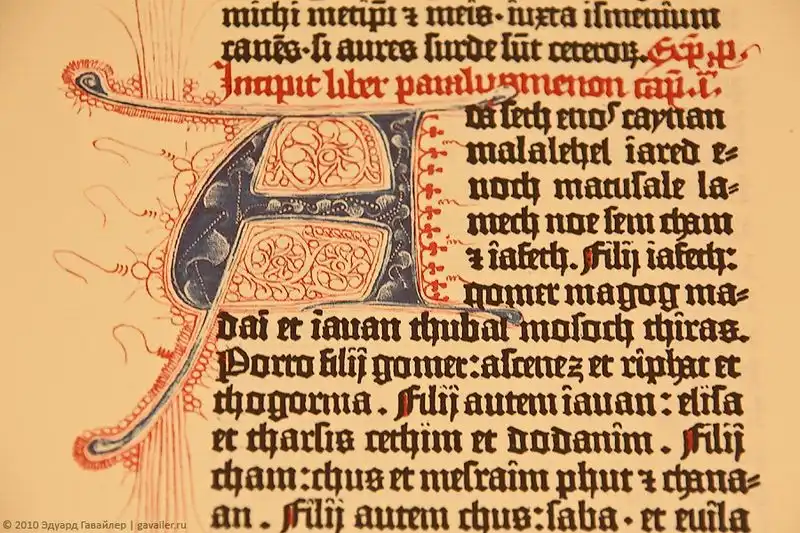 michi metip̄i ⁊ meis· iuxta ismenium
canēs· si aures surde sūt ceteroꝝ. Exp. p.
Incipit liber paralypomenon cap̄. i.
Adā seth enoſ caynan
malalehel iared e=
noch matusale la=
mech noe sem cham
⁊ iafeth. Filij iafeth:
gomer magog ma=
dai et iavan thubal mosoch thiras.
Porro filij gomer: ascenez et riphat et
thogorma. Filij autem iavan: elisa
et tharsis cethim et dodanim. Filij
cham: chus et mesraim phut ⁊ chana=
an. Filij autem chus: saba· et euila
© 2010 Эдуард Гавайлер | gavailer.ru